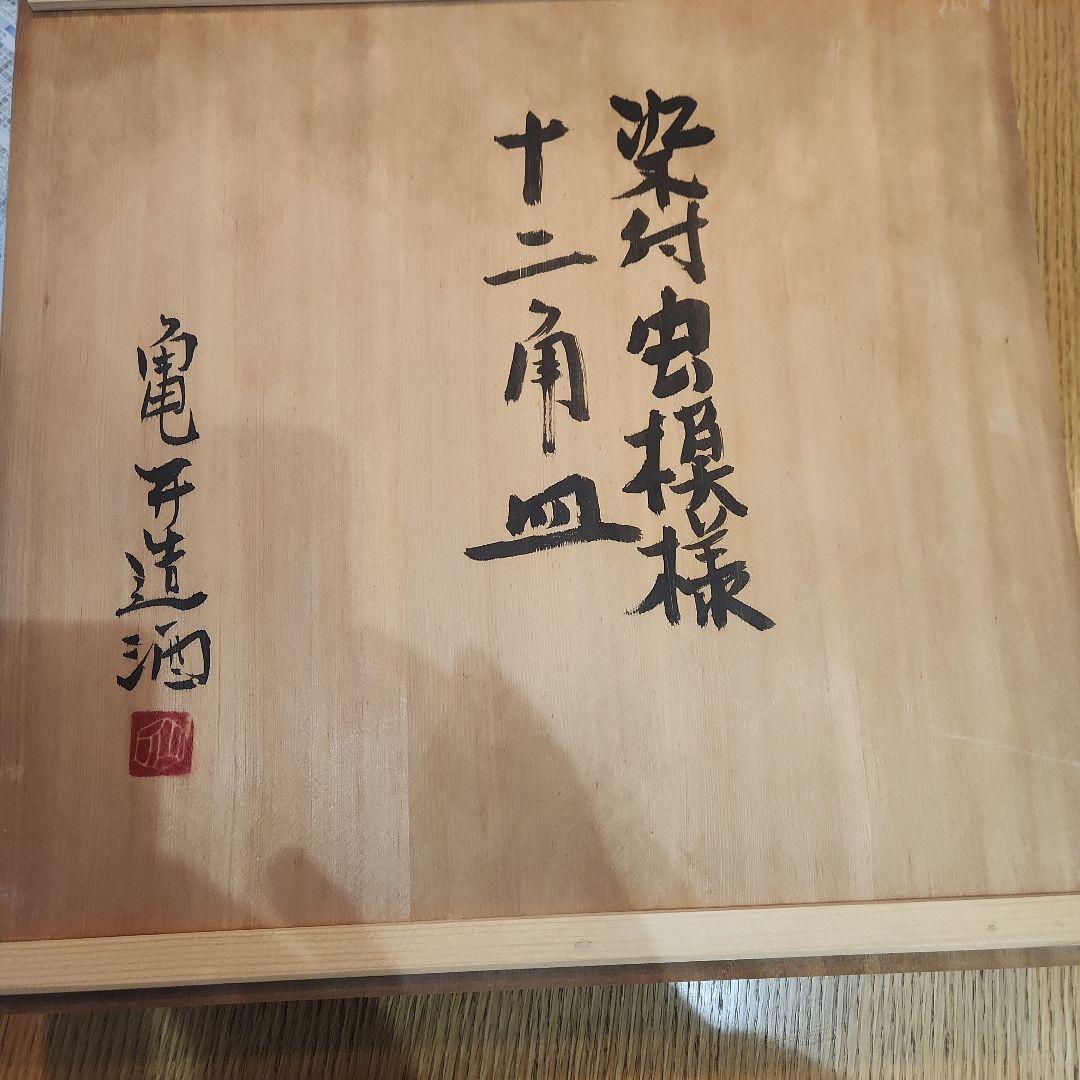 染付虫模様
十二角皿
亀井造酒